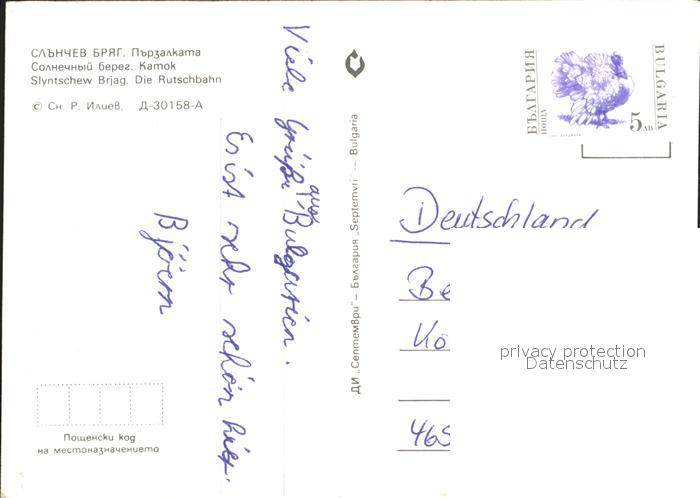 СЛЪНЧЕВ БРЯГ. Пързалката
Солнечный берег. Каток
Slyntschew Brjag. Die Rutschbahn
© Сн. Р. Илиев, Д-30158-А
Viele Grüße aus Bulgarien.
Es ist sehr schön hier.
Björn
Пощенски код
на местоназначението
ДИ „Септември" – България „Septemvri" – Bulgaria
БЪЛГАРИЯ
ПОЩА
BULGARIA
5 ЛВ
Deutschland
Be
Kö
465
privacy protection
Datenschutz